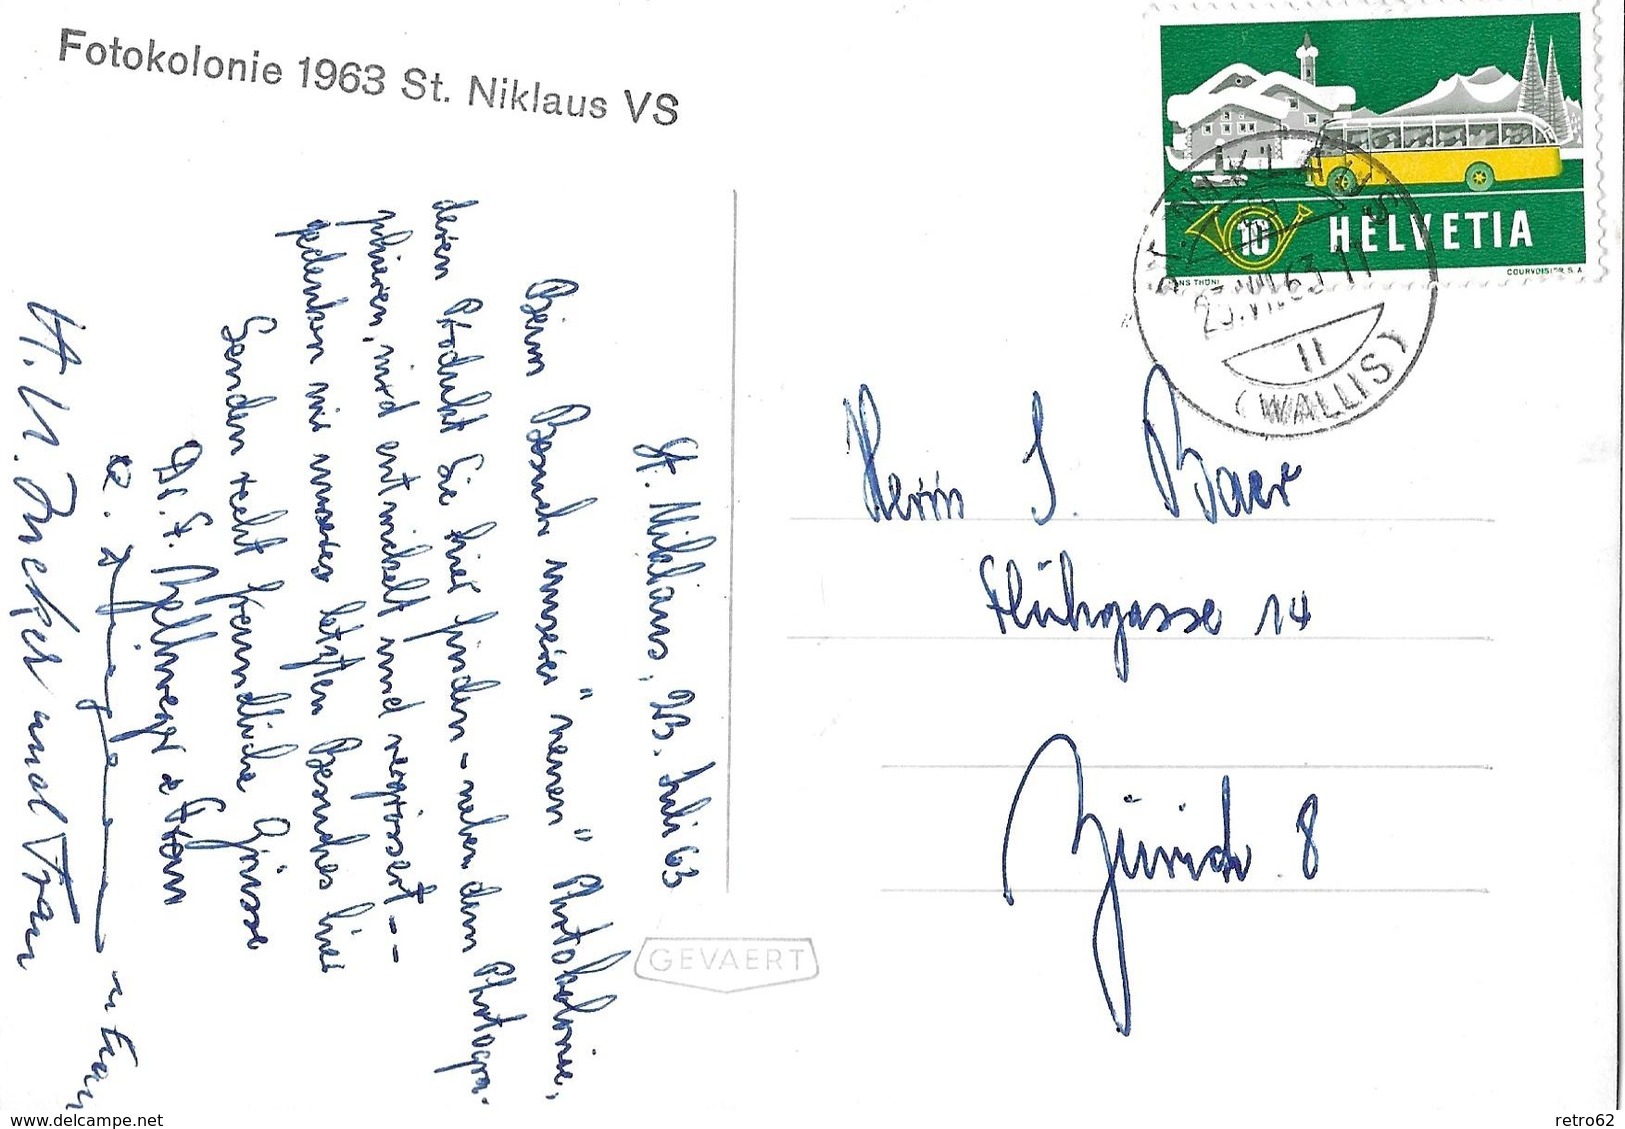 Fotokolonie 1963 St. Niklaus VS
10 HELVETIA
HANS THÖNI
COURVOISIER S.A.
ST. NIKLAUS
23.VII.63 11
11
(WALLIS)
St. Niklaus, 23. Juli 63
Beim Besuch unserer "neuen" Photokolonie,
deren Produkt Sie hier finden - neben dem Photogra-
phieren, wird entwickelt und vergrössert --
gedenken wir unseres letzten Besuches hier
Senden recht freundliche Grüsse
und Frau
Herrn J. Baer
Flühgasse 14
Zürich 8
GEVAERT
delcampe.net
retro62